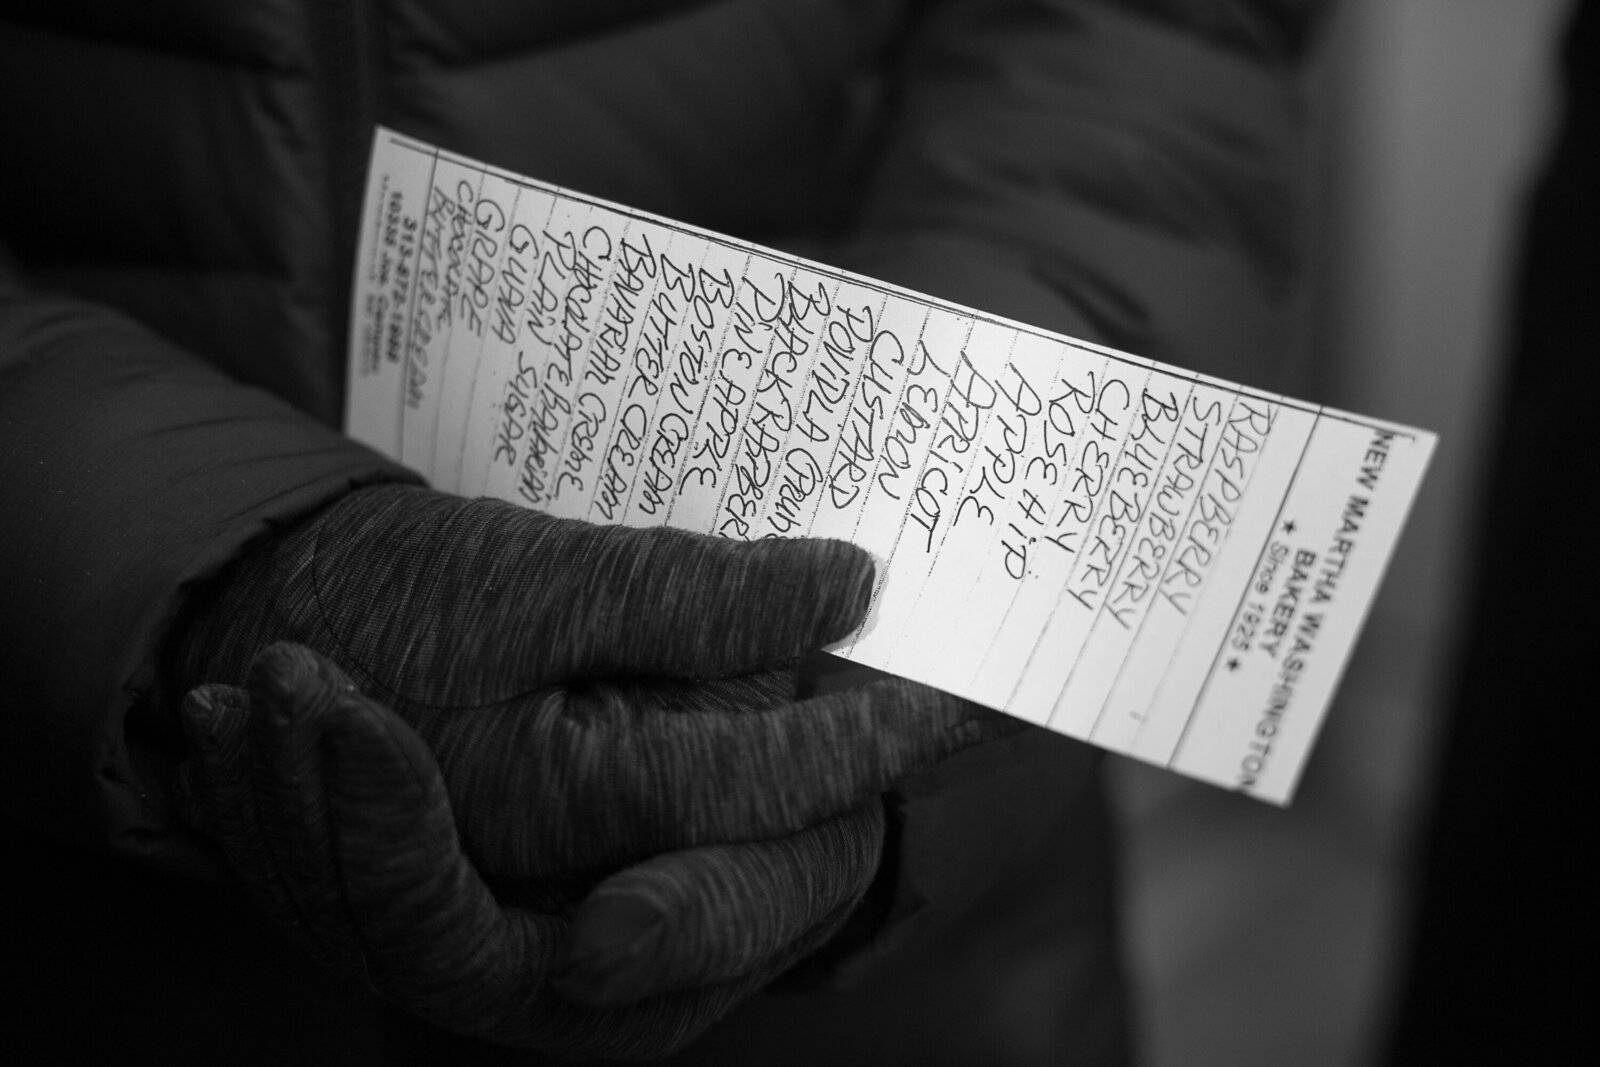 NEW MARTHA WASHINGTON
BAKERY
★ Since 1925 ★
RASPBERRY
STRAWBERRY
BLUEBERRY
CHERRY
ROSE HIP
APPLE
APRICOT
LEMON
CUSTARD
POVIDLA
BLACK RASBER
PINEAPPLE
BOSTON CREAM
BUTTER CREAM
BAVARIAN CREME
CHOCOLATE BAVARIAN
PLAIN SUGAR
GUAVA
GRAPE
CHOCOLATE
BUTTERCREAM
313-872-1988
10335 Jos. Campau